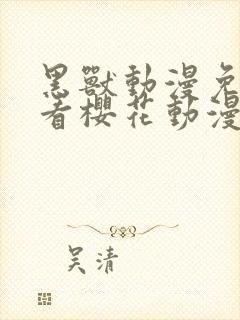 黑獸動漫免
看櫻花動漫
吴清